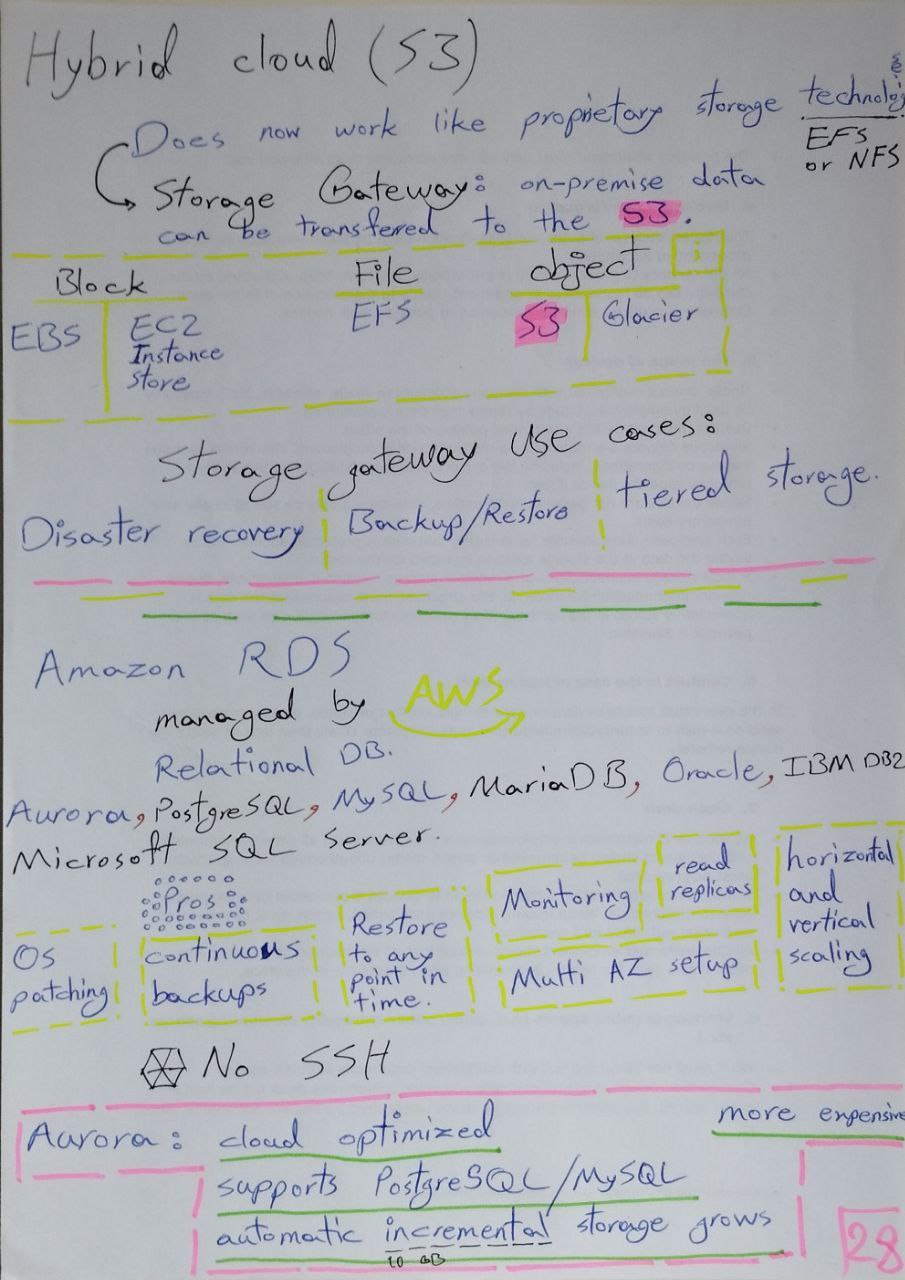 Hybrid cloud (S3)
Does now work like proprietary storage technolog
EFS
or NFS
Storage Gateway: on-premise data
can be transferred to the S3.
Block File object i
EBS EC2 EFS S3 Glacier
Instance
store
Storage gateway use cases:
Disaster recovery Backup/Restore tiered storage.
Amazon RDS
managed by AWS
Relational DB.
Aurora, PostgreSQL, MySQL, MariaDB, Oracle, IBM DB2
Microsoft SQL server.
Pros
OS
patching
continuous
backups
Restore
to any
point in
time.
Monitoring
read
replicas
Multi AZ setup
horizontal
and
vertical
scaling
No SSH
Aurora: cloud optimized more expensive
supports PostgreSQL/MySQL
automatic incremental storage grows
10 GB
28